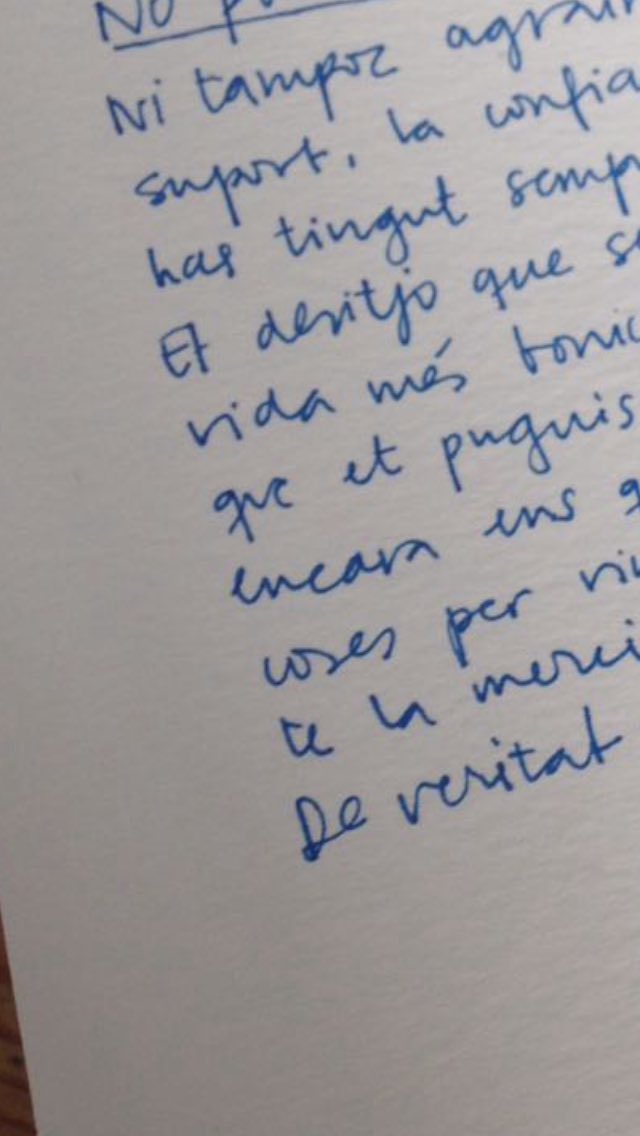 No
Ni tampoc agrair
suport, la confia
has tingut semp
Et desitjo que se
vida més bonic
que et puguis
encara ens q
coses per viu
te la merei
De veritat